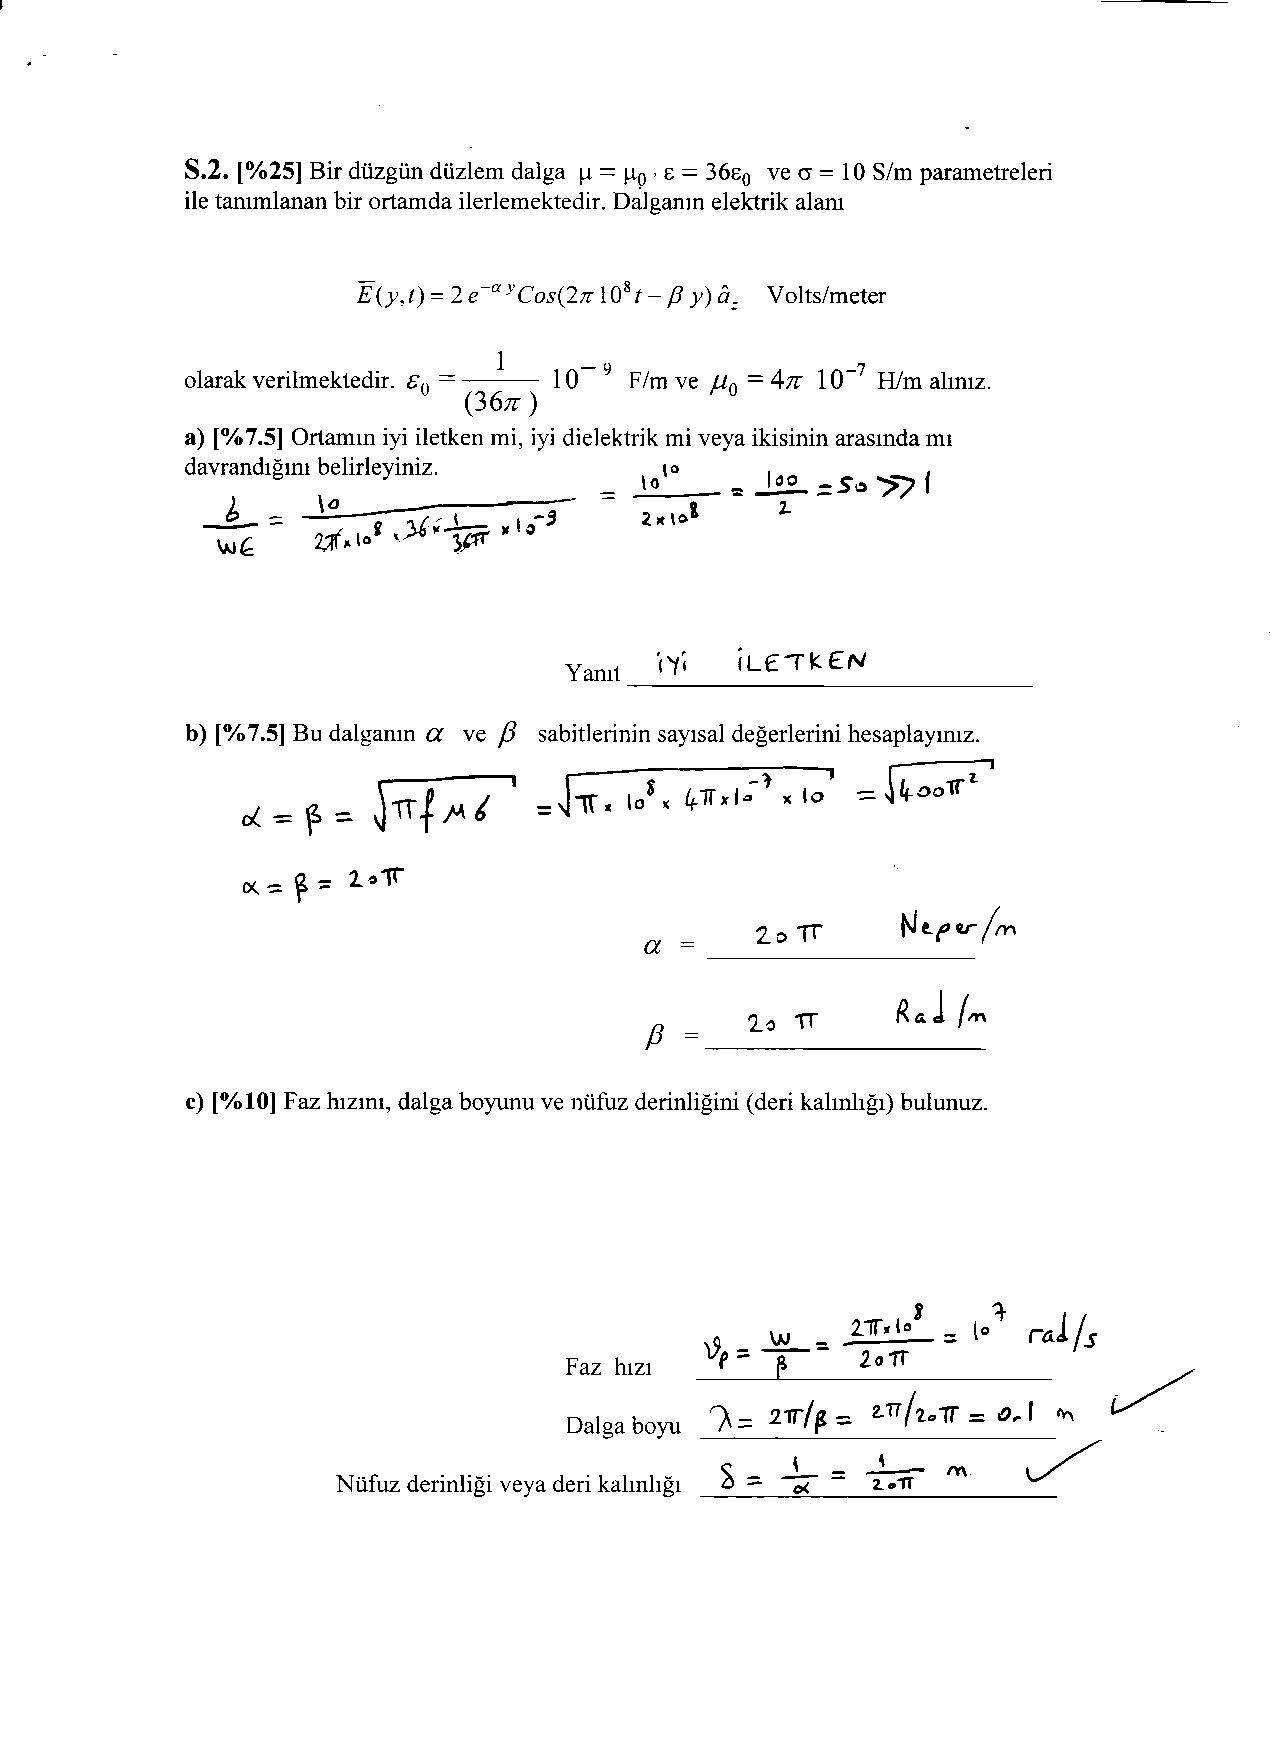 S.2. [%25] Bir düzgün düzlem dalga μ = μ₀, ε = 36ε₀ ve σ = 10 S/m parametreleri
ile tanımlanan bir ortamda ilerlemektedir. Dalganın elektrik alanı
E̅(y,t) = 2 e^(-α y) Cos(2π 10⁸ t – β y) â_z Volts/meter
olarak verilmektedir. ε₀ = 1/(36π) 10⁻⁹ F/m ve μ₀ = 4π 10⁻⁷ H/m alınız.
a) [%7.5] Ortamın iyi iletken mi, iyi dielektrik mi veya ikisinin arasında mı
davrandığını belirleyiniz.
σ/wϵ = 10/(2π×10⁸ × 36×1/36π ×10⁻⁹) = 10¹⁰/2×10⁸ = 100/2 = 50 >> 1
Yanıt iyi iLETKEN
b) [%7.5] Bu dalganın α ve β sabitlerinin sayısal değerlerini hesaplayınız.
α = β = √(πfμσ) = √(π × 10⁸ × 4π×10⁻⁷ × 10) = √(400π²)
α = β = 20π
α = 20π Neper/m
β = 20 π Rad/m
c) [%10] Faz hızını, dalga boyunu ve nüfuz derinliğini (deri kalınlığı) bulunuz.
Faz hızı 𝜗p = w/β = 2π×10⁸/20π = 10⁷ rad/s
Dalga boyu λ = 2π/β = 2π/20π = 0.1 m ✓
Nüfuz derinliği veya deri kalınlığı δ = 1/α = 1/20π m ✓